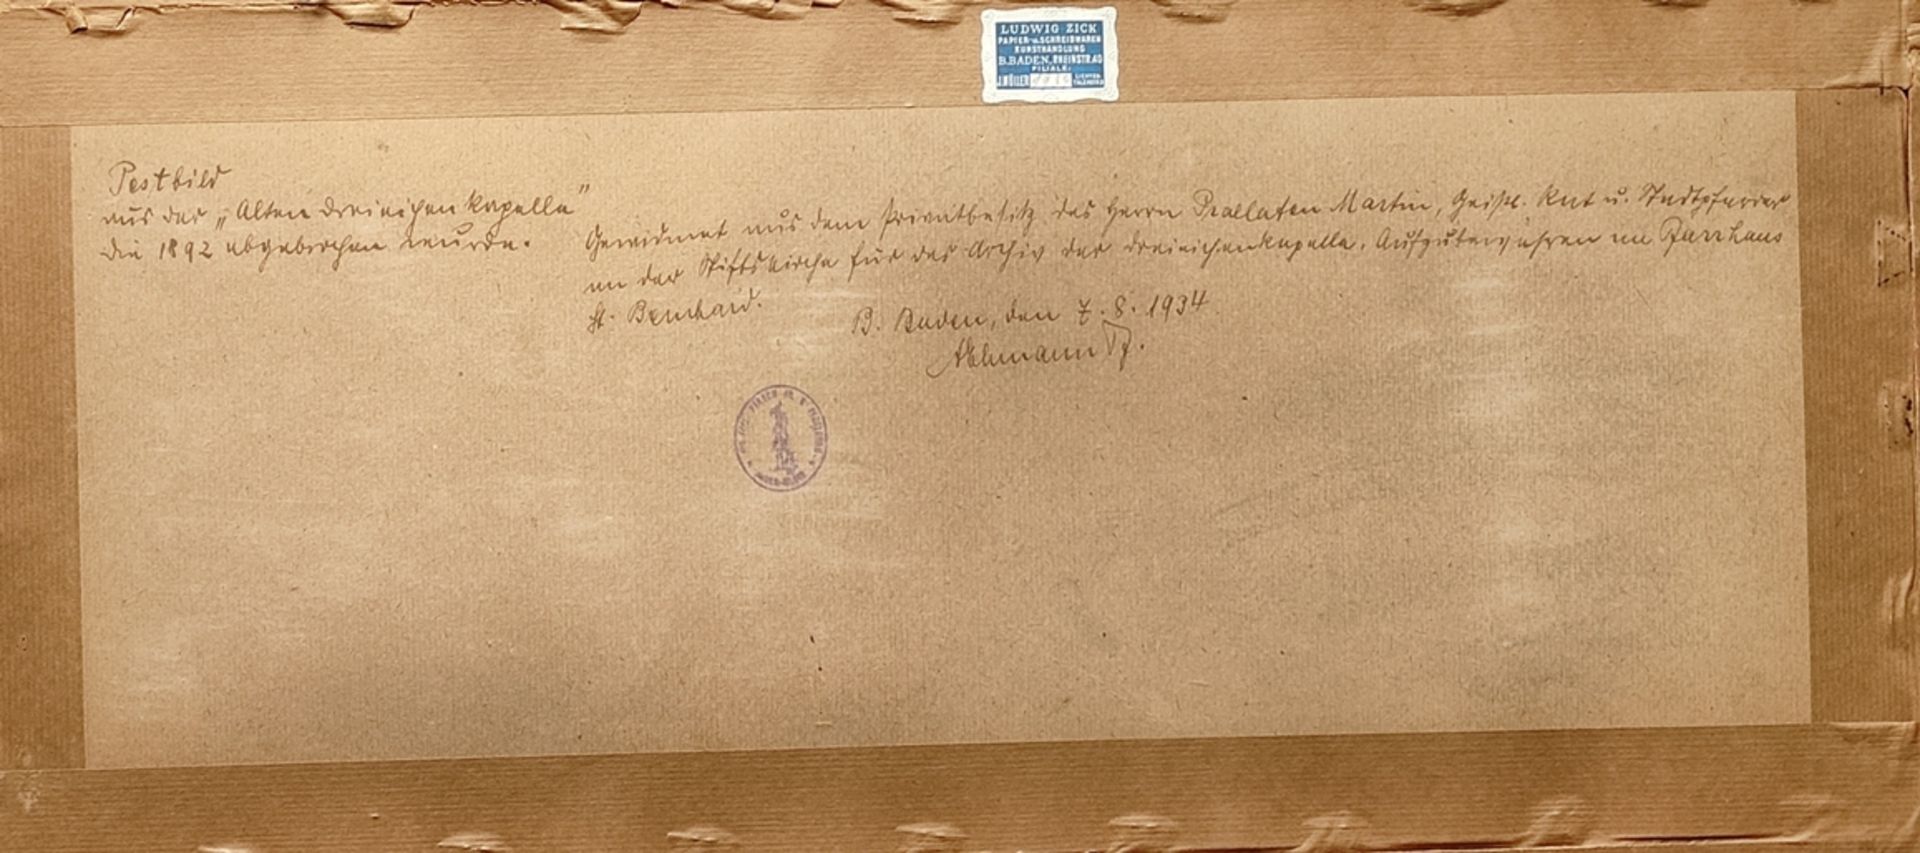 LUDWIG ZICK
PAPIER- u. SCHREIBWAREN
KUNSTHANDLUNG
B. BADEN, RHEINSTR. 40
FILIALE:
J. MÜLLER LICHTEN
Pestbild
aus der „Alten Dreieichenkapelle"
die 1892 abgebrochen wurde.
Gewidmet aus dem Privatbesitz des Herrn Praelaten Martin, Geistl. Rat u. Stadtpfarrer
an der Stiftskirche für das Archiv der Dreieichenkapelle. Aufzubewahren im Pfarrhaus
St. Bernhard.
B. Baden, den 7. 8. 1934